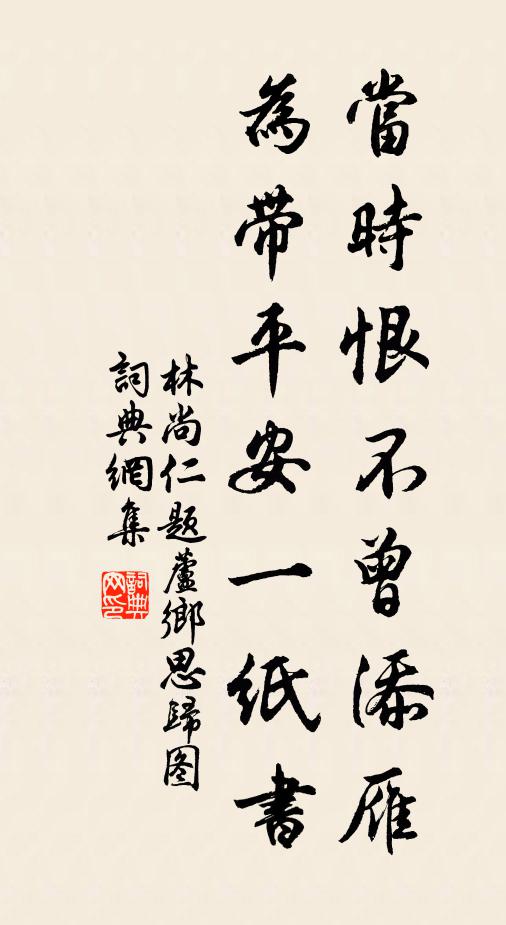 當時恨不曾添雁
為帶平安一紙書
林尚仁题蘆鄉思歸图
詞典網集
詞典网印